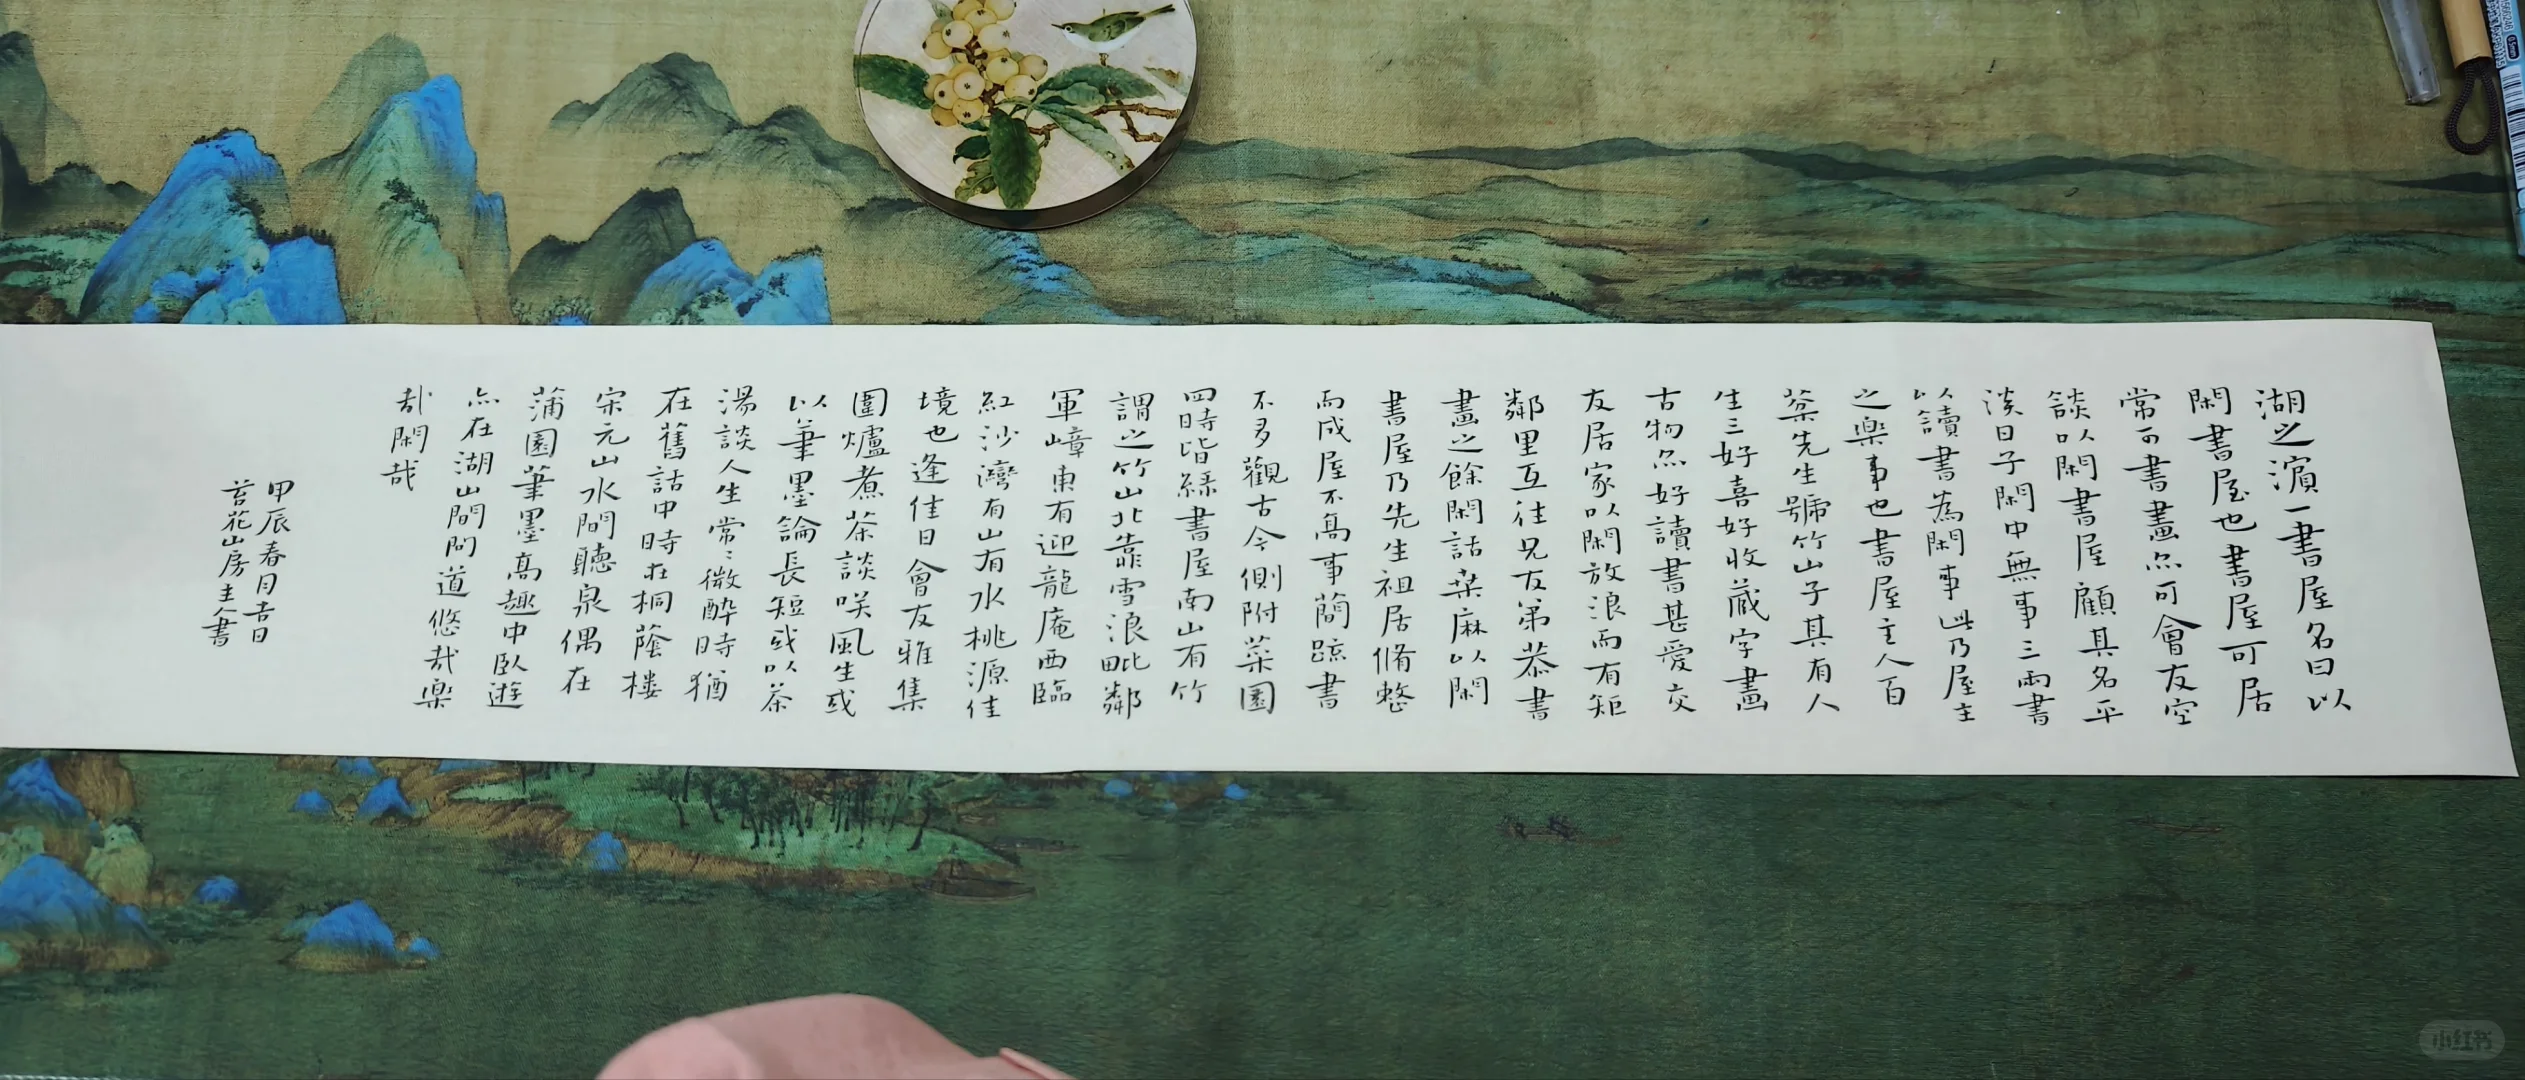 湖之濵一書屋名曰以
閑書屋也書屋可居
常可書畫亦可會友空
談以閑書屋顧其名平
淡日子閑中無事三兩書
以讀書為閑事此乃屋主
之樂事也書屋主人百
棻先生號竹山子其有人
生三好喜好收蔵字畫
古物亦好讀書甚愛交
友居家以閑放浪而有矩
鄰里互往兄友弟恭書
畫之餘閑話桒麻以閑
書屋乃先生祖居脩整
而成屋不髙事蕳䟽書
不多觀古今側附菜園
四時皆緑書屋南山有竹
謂之竹山北靠雪浪毗鄰
軍嶂東有迎龍庵西臨
紅沙灣有山有水桃源佳
境也逢佳日會友雅集
圍爐煮茶談咲風生或
以筆墨論長短或以茶
湯談人生常〻微醉時猶
在舊話中時在桐蔭樓
宋元山水間聽泉偶在
蒲園筆墨髙趣中臥遊
亦在湖山間問道悠哉樂
哉閑哉
甲辰春月吉日
苔花山房主人書
小红书